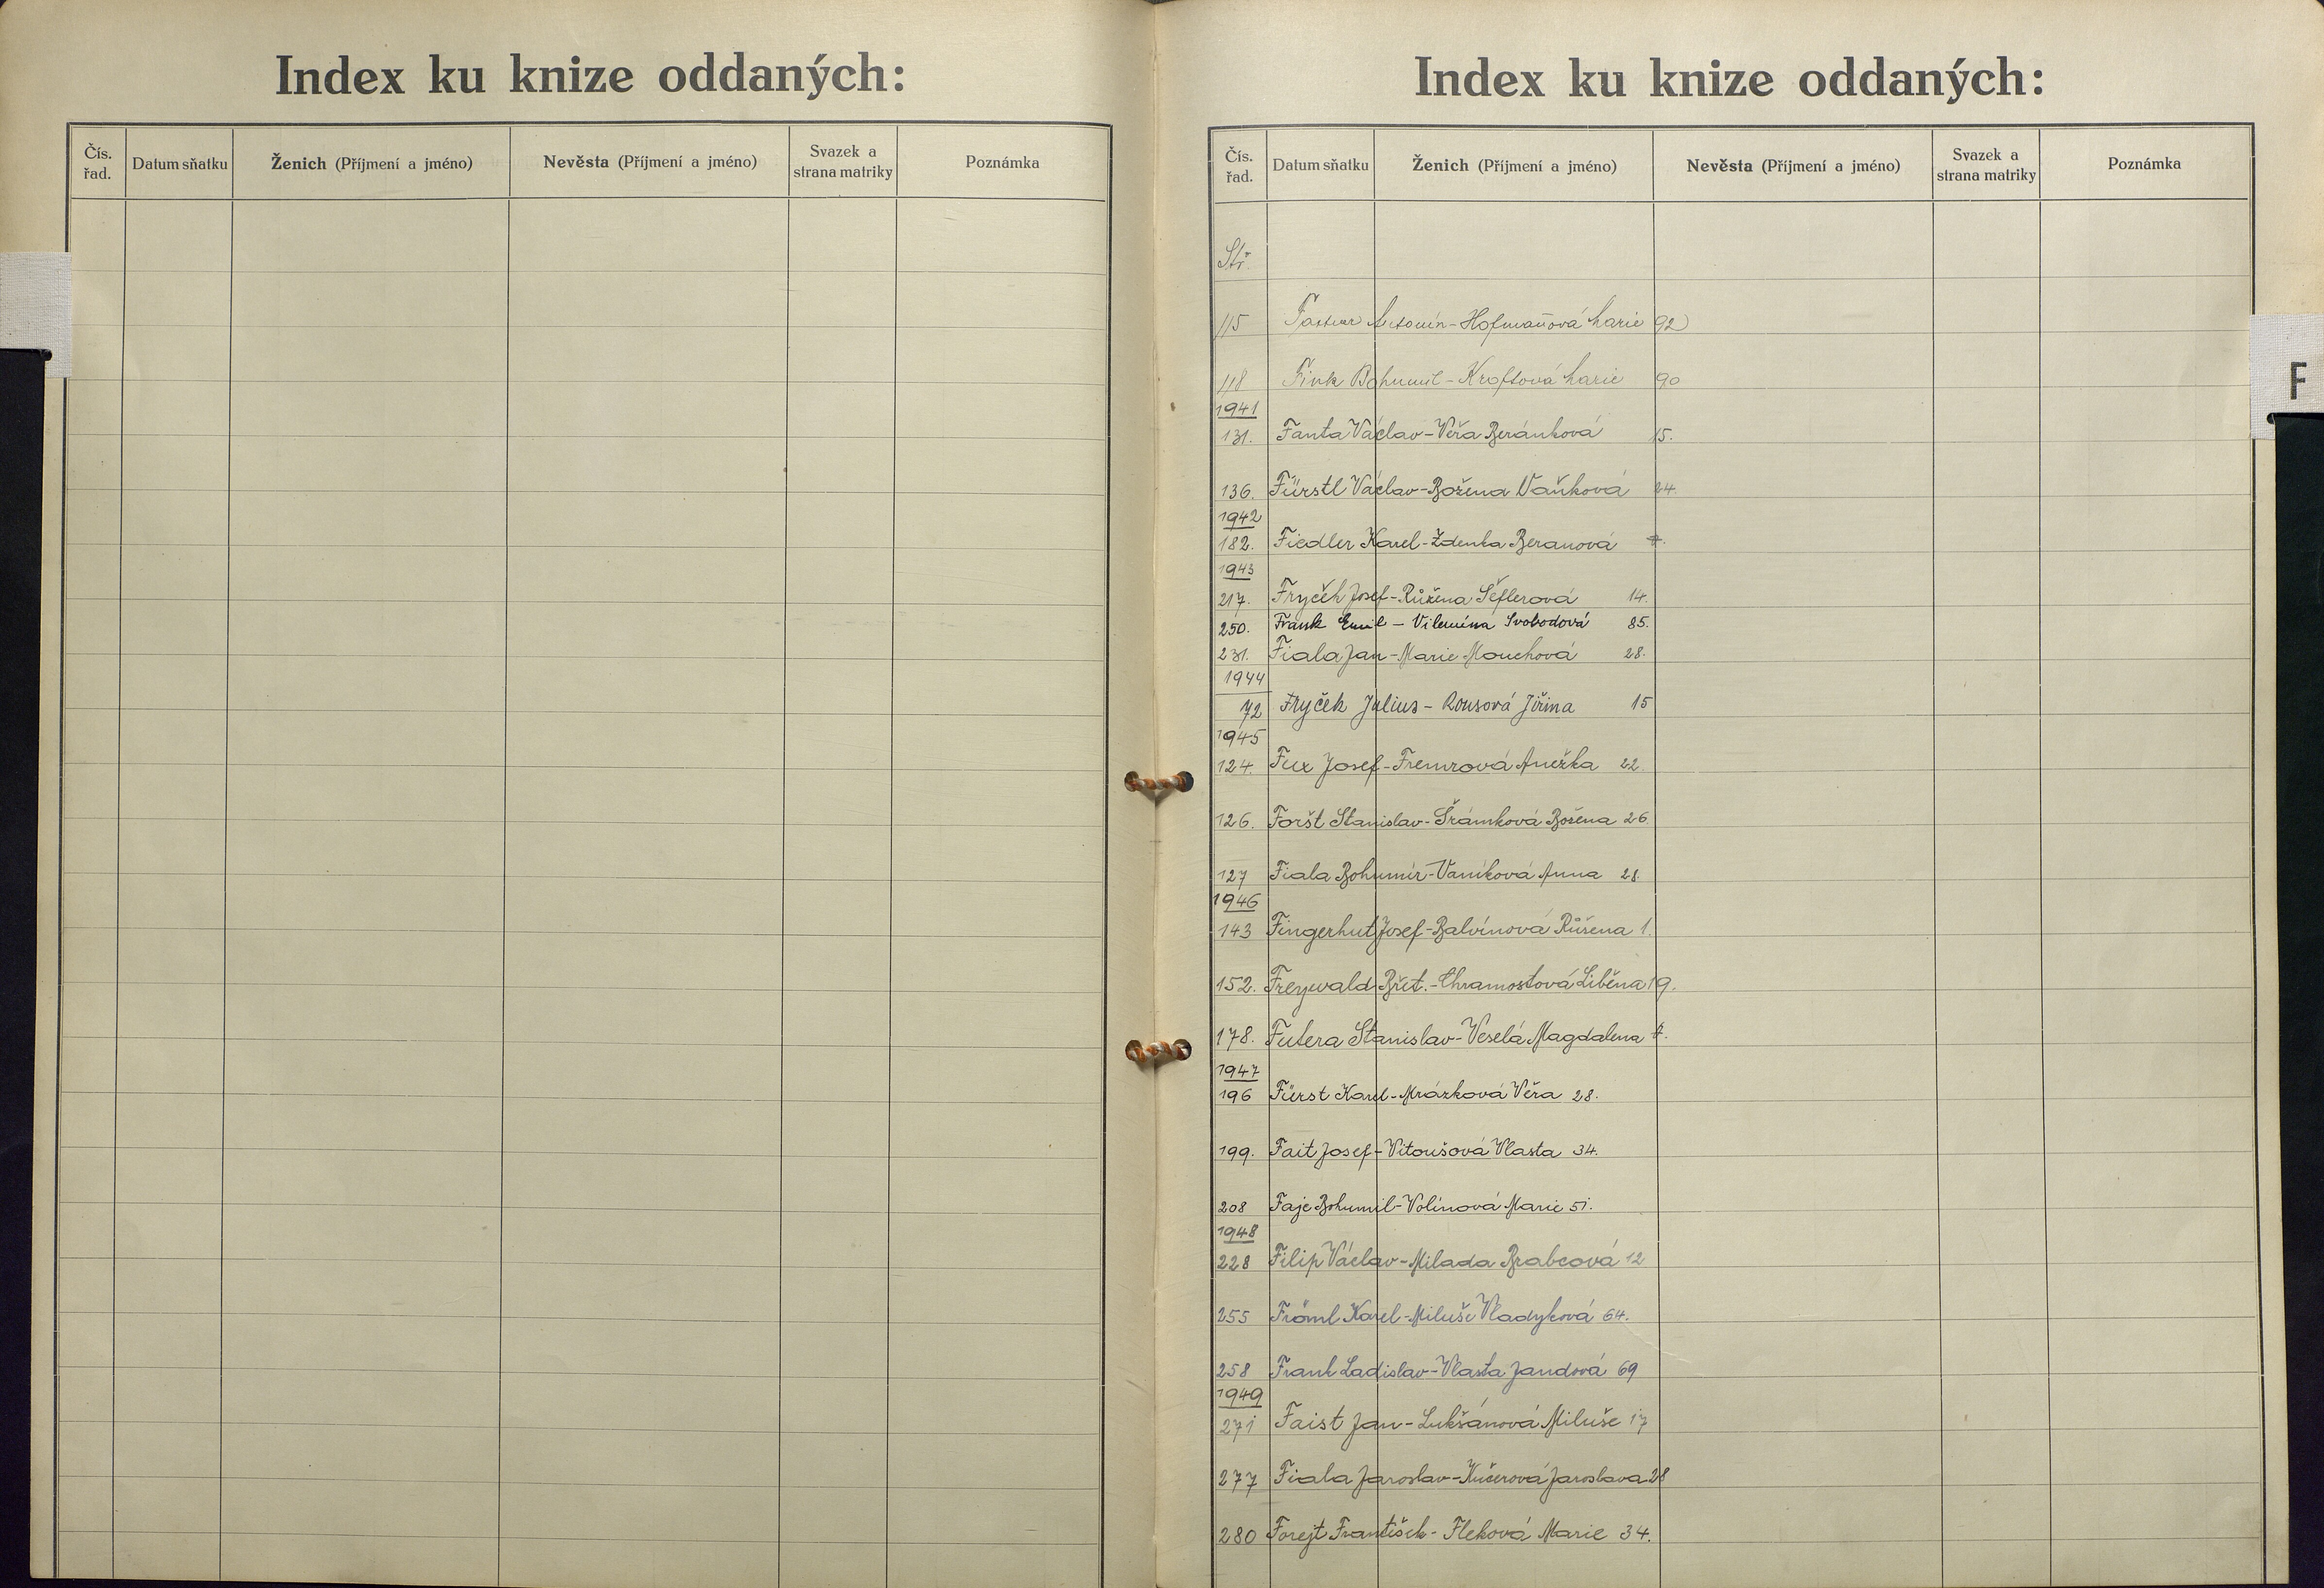 Index ku knize oddaných:
Čís. řad. Datum sňatku Ženich (Příjmení a jméno) Nevěsta (Příjmení a jméno) Svazek a strana matriky Poznámka
Index ku knize oddaných:
Čís. řad. Datum sňatku Ženich (Příjmení a jméno) Nevěsta (Příjmení a jméno) Svazek a strana matriky Poznámka
Str.
115 Antonín - Hofmanová Marie 92
118 Fink Bohumil - Kroftová Marie 90
F
1941
131. Fanta Václav - Věra Beránková 15.
136. Fürstl Václav - Božena Vaňková 24.
1942
182. Fiedler Karel - Zdenka Beranová 7.
1943
217. Fryček Josef - Růžena Šeflerová 14.
250. Frank Emil - Vilemína Svobodová 85.
231. Fiala Jan - Marie Mouchová 28.
1944
72 Fryček Julius - Rousová Jiřina 15
1945
124. Fux Josef - Fremrová Anežka 22.
126. Foršt Stanislav - Šrámková Božena 26.
127 Fiala Bohumír - Vaníková Anna 28.
1946
143 Fingerhut Josef - Balvínová Růžena 1.
152. Freywald Břet. - Chramostová Liběna 19.
178. Futera Stanislav - Veselá Magdalena 7.
1947
196 Fürst Karel - Mrázková Věra 28.
199. Fait Josef - Vitoušová Vlasta 34.
208 Faje Bohumil - Volínová Marie 51.
1948
228 Filip Václav - Milada Brabcová 12
255 Fröml Karel - Miluše Vladyková 64.
258 Frank Ladislav - Vlasta Jandová 69
1949
271 Faist Jan - Lukšánová Miluše 17
277 Fiala Jaroslav - Kučerová Jaroslava 28
280 Forejt František - Fleková Marie 34.